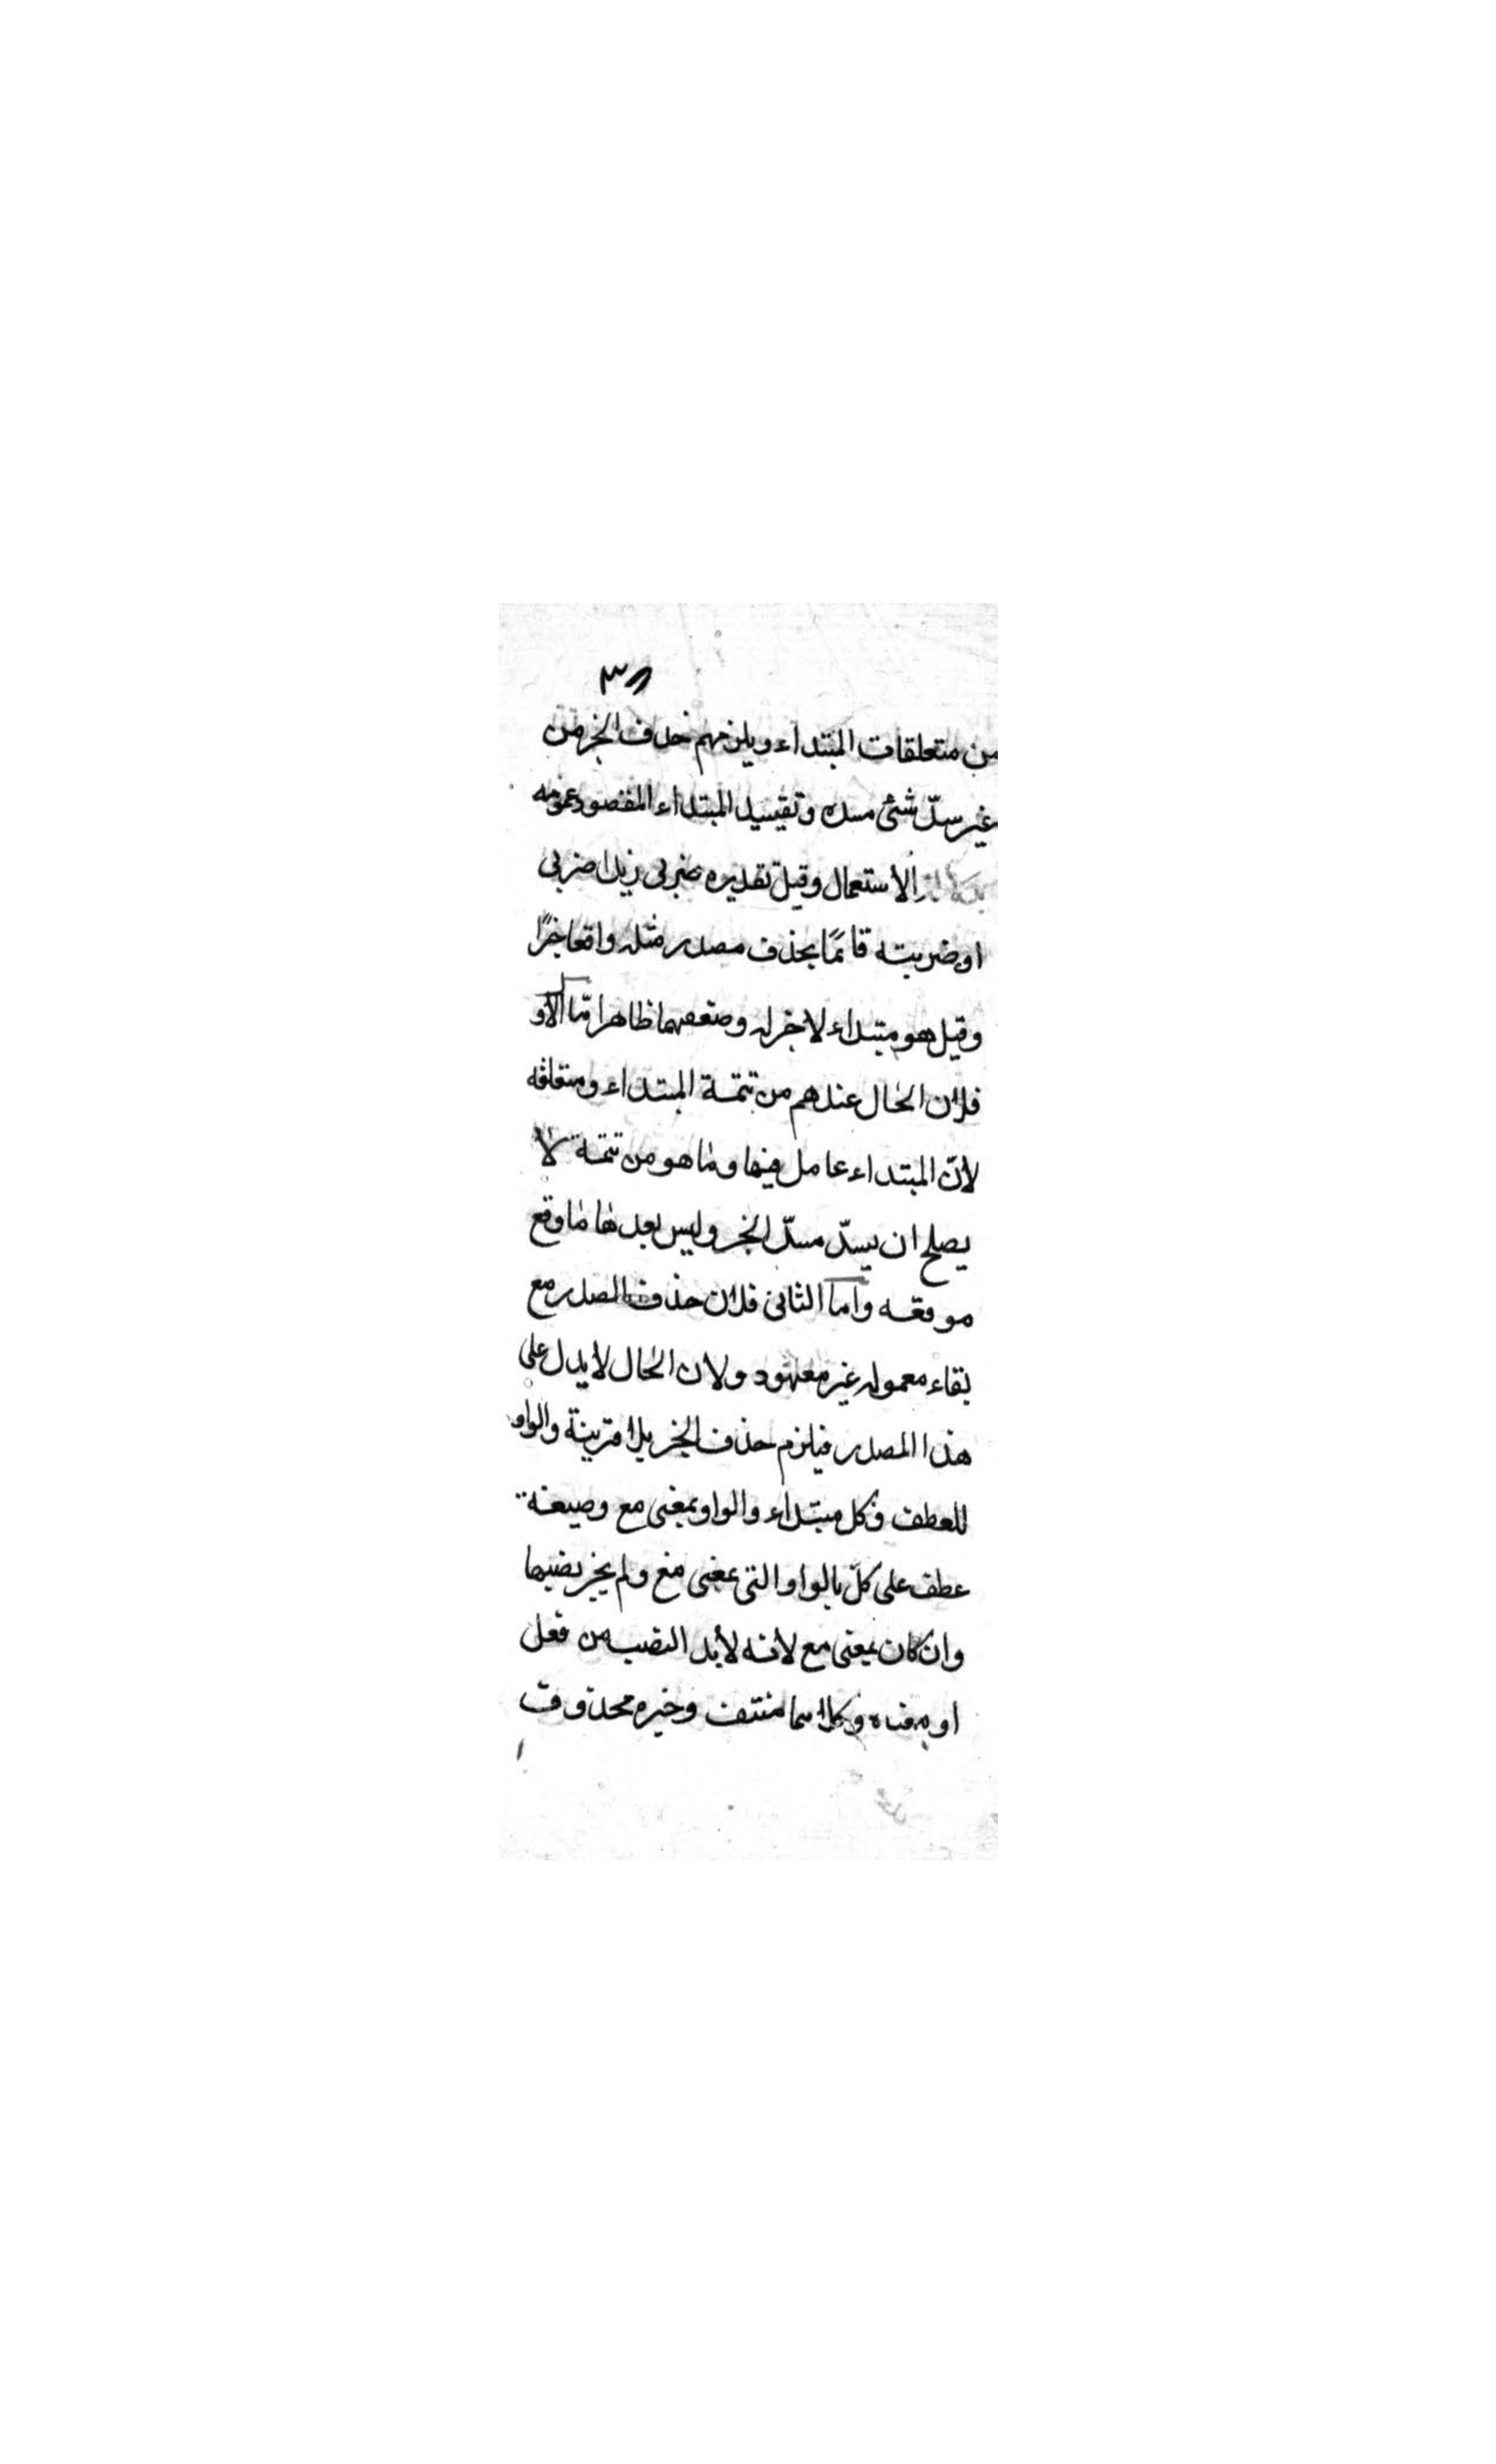 ٣٨
من متعلقات المبتداء ويلزمهم حذف الخبر من
غير سدّ شئ مسده وتقييد المبتداء المقصود عمومه
الاستعمال وقيل تقديره ضربى زيدا ضربى
او ضربته قائمًا بحذف مصدر مثله واقعا خبرًا
وقيل هو مبتداء لا خبر له وضعفهما ظاهر امّا الأو
فلان الحال عندهم من تتمة المبتداء ومتعلقه
لانّ المبتداء عامل فيها وما هو من تتمة لا
يصلح ان يسدّ مسدّ الخبر وليس بعدها ما وقع
موقعه واما الثانى فلان حذف المصدر مع
بقاء معموله غير معهود ولان الحال لا يدل على
هذا المصدر فيلزم حذف الخبر بلا قرينة والواو
للعطف وكل مبتداء والواو بمعنى مع وضيعته
عطف على كلّ بالواو التى بمعنى مع ولم يجز نصبها
وان كان بمعنى مع لانه لابد النصب من فعل
او معناه وكلاهما منتف وخبره محذوف